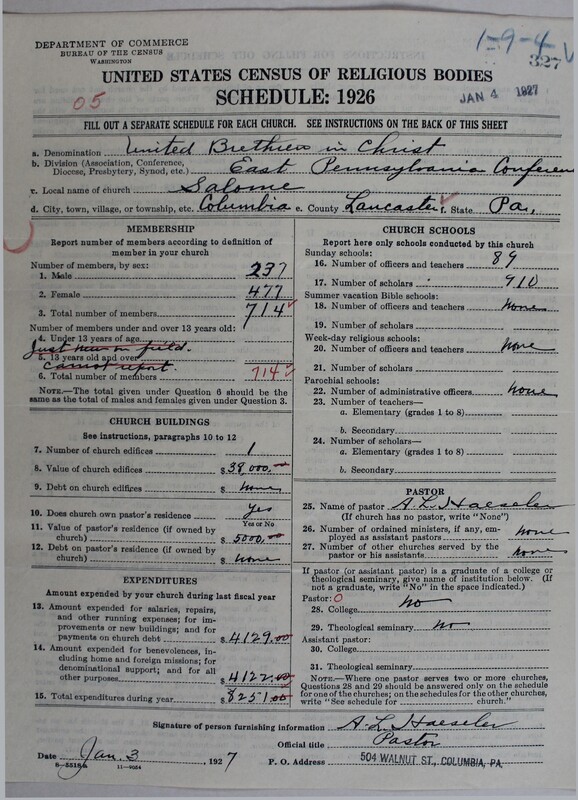 DEPARTMENT OF COMMERCE
BUREAU OF THE CENSUS
WASHINGTON
1-9-4
327
UNITED STATES CENSUS OF RELIGIOUS BODIES
05
SCHEDULE: 1926
JAN 4 1927
FILL OUT A SEPARATE SCHEDULE FOR EACH CHURCH. SEE INSTRUCTIONS ON THE BACK OF THIS SHEET
a. Denomination United Brethren in Christ
b. Division (Association, Conference, Diocese, Presbytery, Synod, etc.) East Pennsylvania Conferen
c. Local name of church Salome
d. City, town, village, or township, etc. Columbia e. County Lancaster f. State Pa,
MEMBERSHIP
Report number of members according to definition of
member in your church
Number of members, by sex:
1. Male 237
2. Female 477
3. Total number of members 714
Number of members under and over 13 years old:
4. Under 13 years of age
Just new on field.
5. 13 years old and over
cannot report.
6. Total number of members 714
NOTE.—The total given under Question 6 should be
the same as the total of males and females given under Question 3.
CHURCH BUILDINGS
See instructions, paragraphs 10 to 12
7. Number of church edifices 1
8. Value of church edifices $ 38,000.00
9. Debt on church edifices $ none
10. Does church own pastor's residence? Yes
Yes or No
11. Value of pastor's residence (if owned by
church) $ 5000.00
12. Debt on pastor's residence (if owned by
church) $ none
EXPENDITURES
Amount expended by your church during last fiscal year
13. Amount expended for salaries, repairs,
and other running expenses; for im-
provements or new buildings; and for
payments on church debt $ 4129.00
14. Amount expended for benevolences, in-
cluding home and foreign missions; for
denominational support; and for all
other purposes $ 4122.00
15. Total expenditures during year $ 8251.00
CHURCH SCHOOLS
Report here only schools conducted by this church
Sunday schools:
16. Number of officers and teachers 89
17. Number of scholars 910
Summer vacation Bible schools:
18. Number of officers and teachers none
19. Number of scholars
Week-day religious schools:
20. Number of officers and teachers none
21. Number of scholars
Parochial schools:
22. Number of administrative officers none
23. Number of teachers—
a. Elementary (grades 1 to 8)
b. Secondary
24. Number of scholars—
a. Elementary (grades 1 to 8)
b. Secondary
PASTOR
25. Name of pastor A. L. Haeseler
(If church has no pastor, write "None")
26. Number of ordained ministers, if any, em-
ployed as assistant pastors none
27. Number of other churches served by the
pastor or his assistants none
If pastor (or assistant pastor) is a graduate of a college or
theological seminary, give name of institution below. (If
not a graduate, write "No" in the space indicated.)
Pastor: 0
28. College No
29. Theological seminary No
Assistant pastor:
30. College
31. Theological seminary
NOTE.—Where one pastor serves two or more churches,
Questions 28 and 29 should be answered only on the schedule
for one of the churches; on the schedules for the other churches,
write "See schedule for church."
Signature of person furnishing information A. L. Haeseler
Official title Pastor
Date Jan. 3, 1927
P. O. Address 504 WALNUT ST., COLUMBIA, PA.